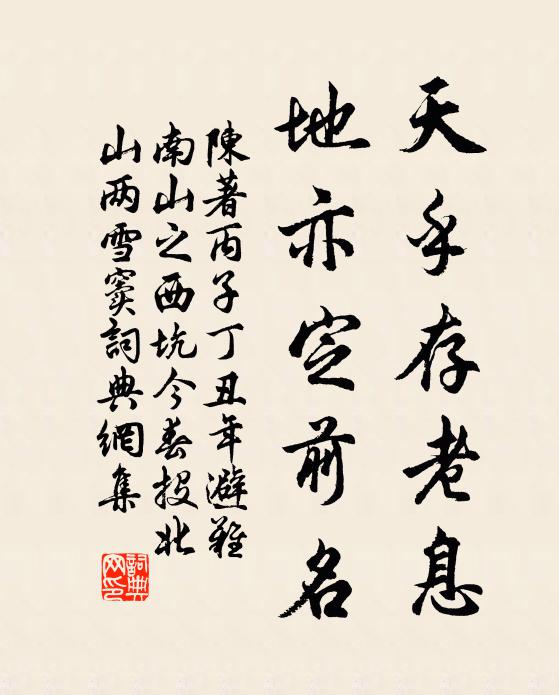 天乎存老息
地亦定前名
陳著丙子丁丑年避難
南山之西坑今春投北
山两雪窦詞典網集
詞典
网印